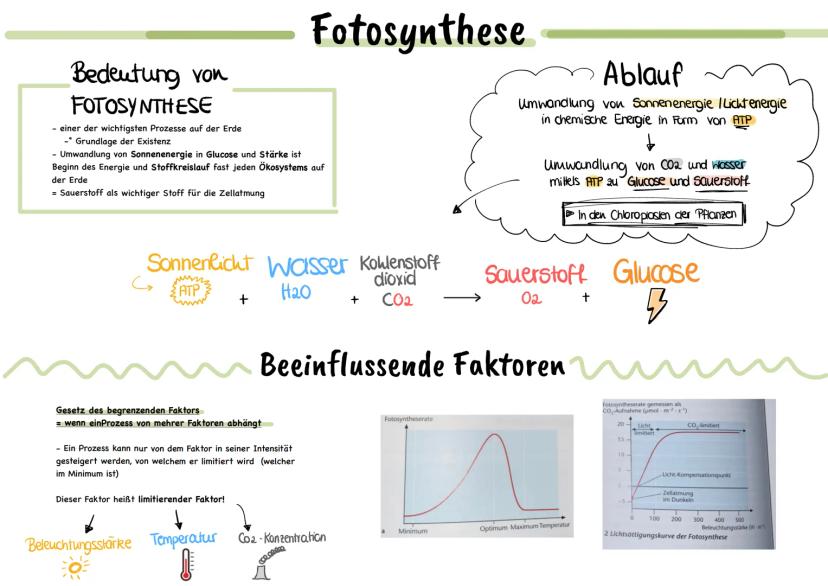 Fotosynthese
Bedeutung von
FOTOSYNTHESE
- einer der wichtigsten Prozesse auf der Erde
-° Grundlage der Existenz
- Umwandlung von Sonnenenergie in Glucose und Stärke ist
Beginn des Energie und Stoffkreislauf fast jeden Ökosystems auf
der Erde
= Sauerstoff als wichtiger Stoff für die Zellatmung
Ablauf
Umwandlung von Sonnenenergie / Lichtenergie
in chemische Energie in Form von ATP
Umwandlung von CO2 und Wasser
mittels ATP zu Glucose und Sauerstoff
In den Chloroplasten der Pflanzen
Sonnenlicht
ATP
+
Wasser
H2O
+
Kohlenstoff
dioxid
CO2
Sauerstoff
O2
+
Glucose
Beeinflussende Faktoren
Gesetz des begrenzenden Faktors
= wenn einProzess von mehrer Faktoren abhängt
- Ein Prozess kann nur von dem Faktor in seiner Intensität
gesteigert werden, von welchem er limitiert wird (welcher
im Minimum ist)
Dieser Faktor heißt limitierender Faktor!
Beleuchtungsstärke
Temperatur
CO2-Konzentration
Fotosyntheserate
a
Minimum
Optimum
Maximum
Temperatur
Fotosyntheserate gemessen als
CO₂-Aufnahme (µmol · m⁻² · s⁻¹)
20
Licht
limitiert
CO₂-limitiert
15
10
5
Licht-Kompensationspunkt
Zellatmung
im Dunkeln
-5
0
100
200
300
400
500
Beleuchtungsstärke
2 Lichtsättigungskurve der Fotosynthese